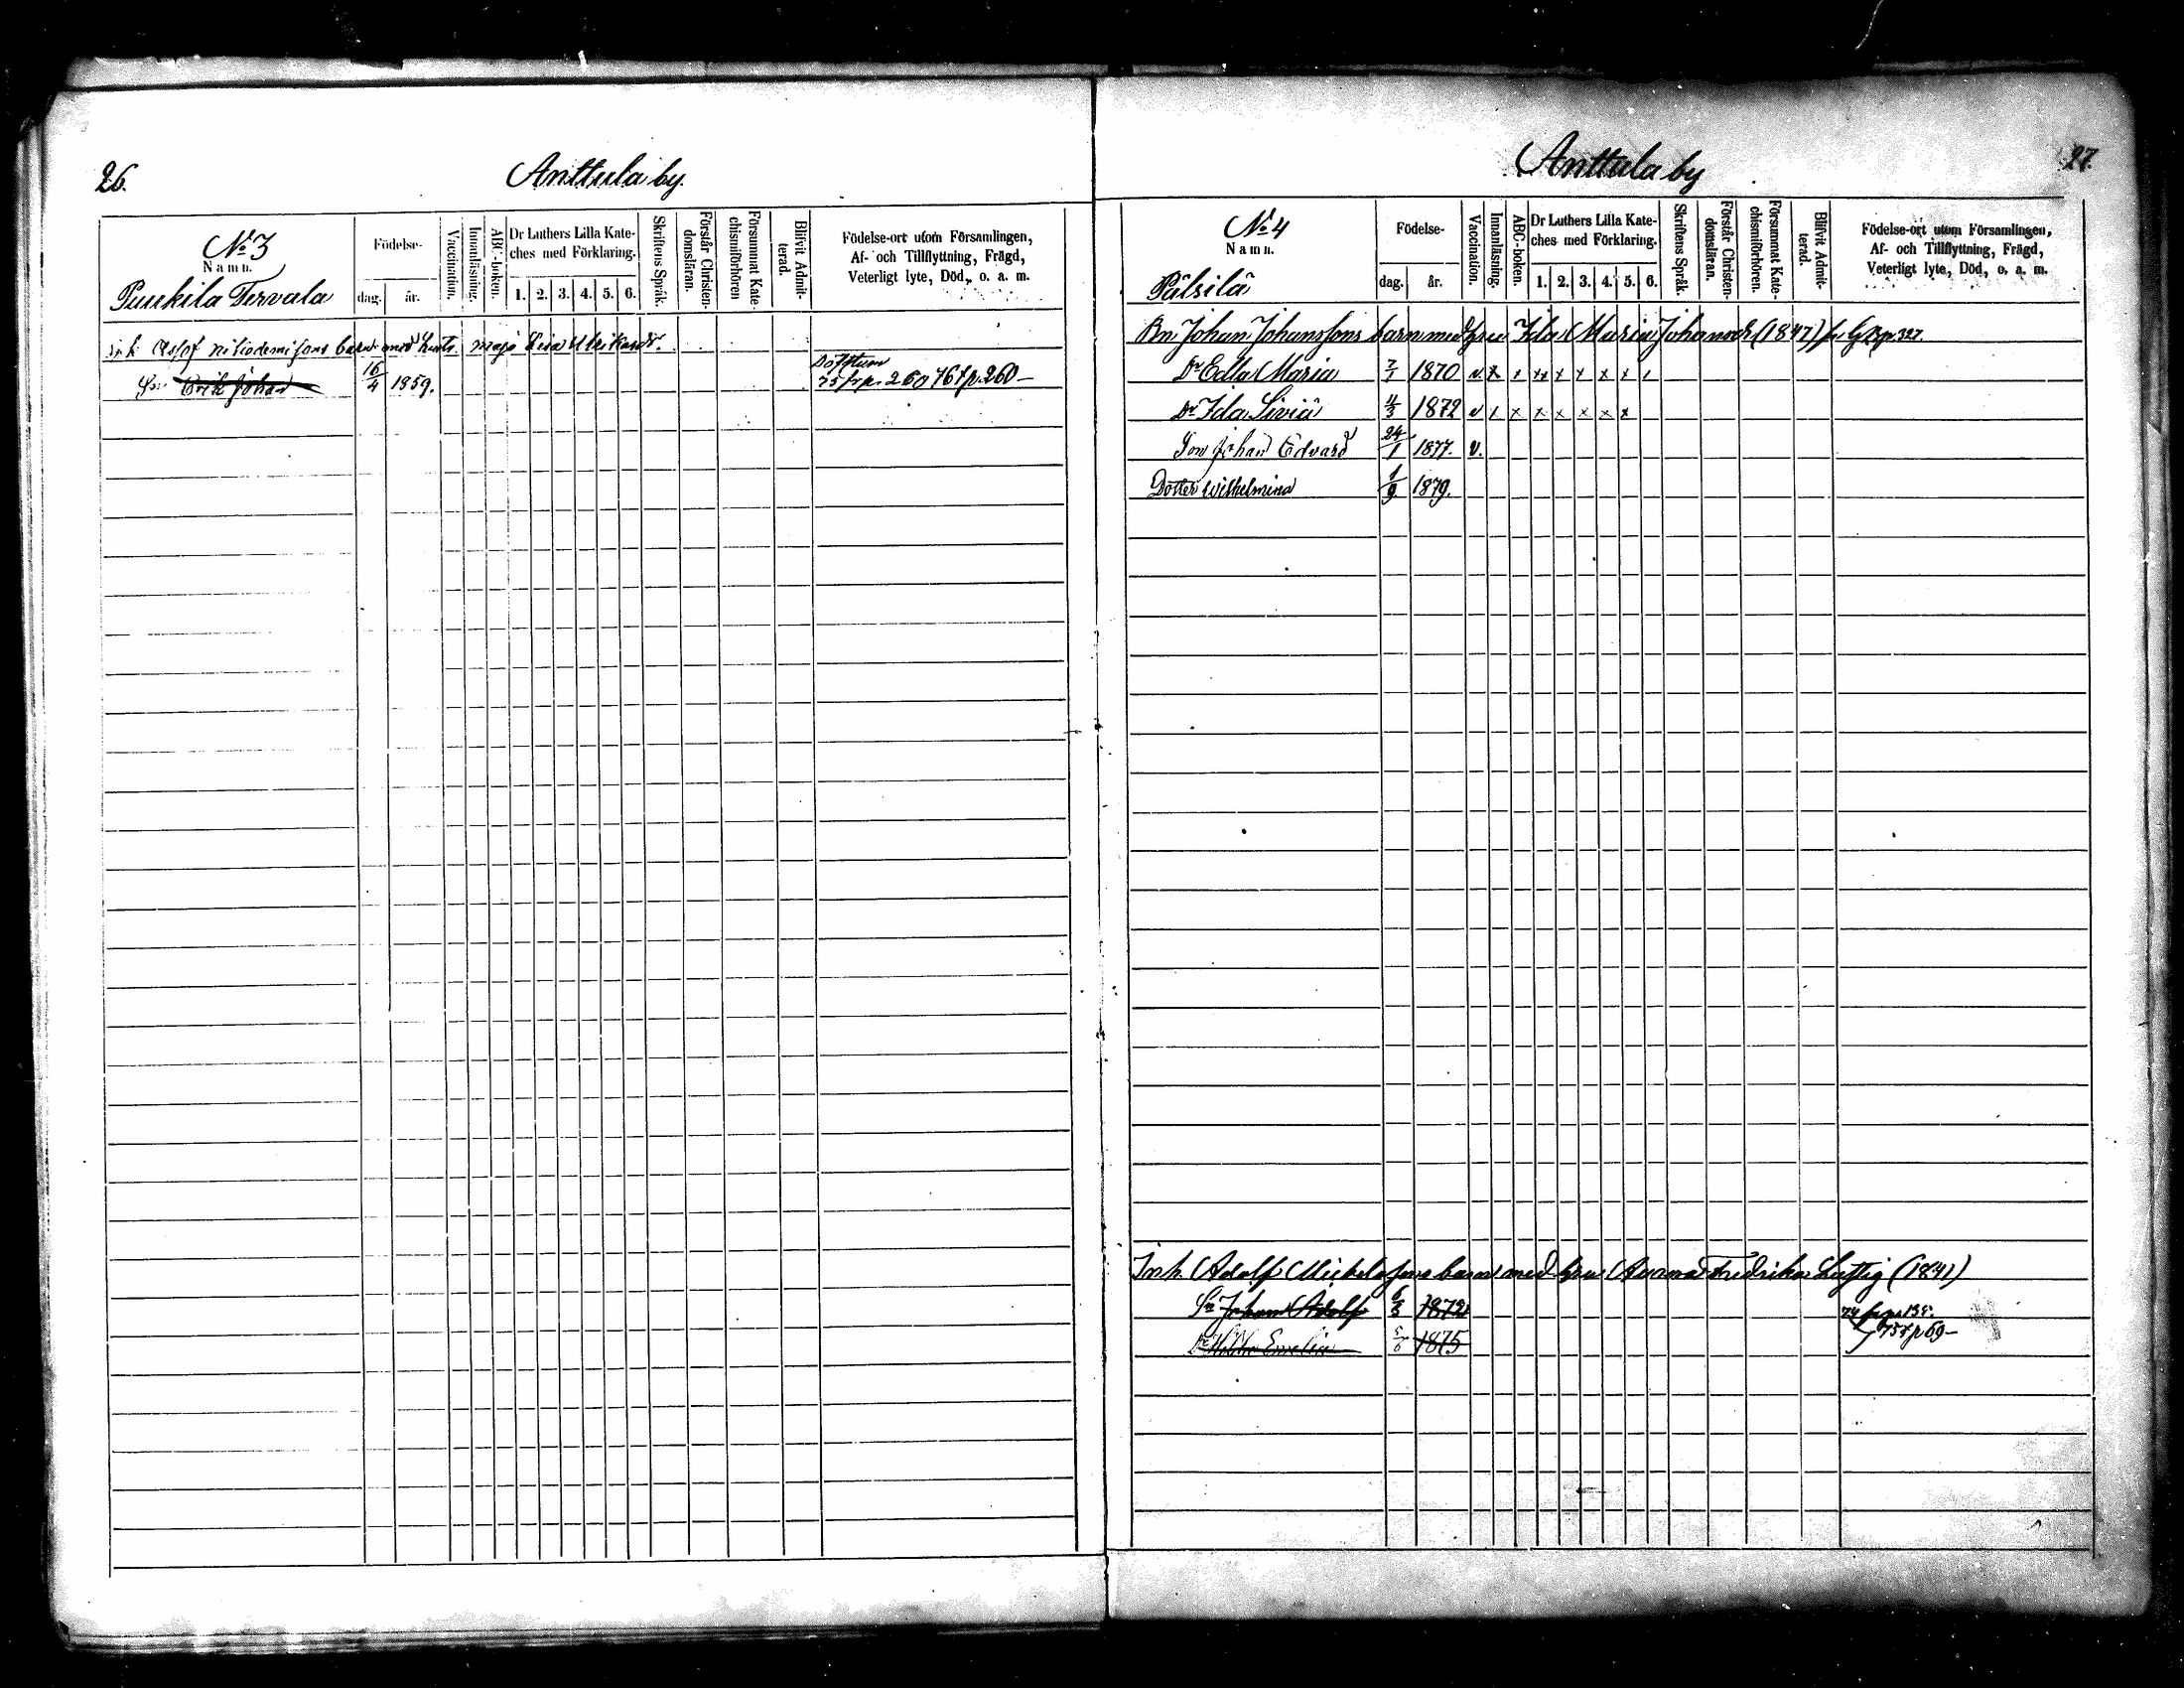 26.
Anttula by.
No 3
Namn.
Puukila Tervala
Födelse-
dag.
år.
Vaccination.
Innanläsning.
ABC-boken.
Dr Luthers Lilla Kate-
ches med Förklaring.
1. 2. 3. 4. 5. 6.
Skriftens Språk.
Förstår Christen-
domsläran.
Försummat Kate-
chismiförhören
Blifvit Admit-
terad.
Födelse-ort utom Församlingen,
Af- och Tillflyttning, Frägd,
Veterligt lyte, Död, o. a. m.
barn med Maja Lisa Ulrikasdr.
Erik Johan 16/4 1859. 75 frp. 260 76 fp. 260 -
27.
Anttula by
No 4
Namn.
Pälsilä
Födelse-
dag.
år.
Vaccination.
Innanläsning.
ABC-boken.
Dr Luthers Lilla Kate-
ches med Förklaring.
1. 2. 3. 4. 5. 6.
Skriftens Språk.
Förstår Christen-
domsläran.
Försummat Kate-
chismiförhören.
Blifvit Admit-
terad.
Födelse-ort utom Församlingen,
Af- och Tillflyttning, Frägd,
Veterligt lyte, Död, o. a. m.
Bn. Johan Johanssons barn med hru Ida Maria Johansdr (1847) p. 327.
Dr Edla Maria 1870 v x x x x x x x x
Dr Ida Livia 4/3 1872 v x x x x x x x
Son Johan Edvard 24/1 1877. v.
Dotter Wilhelmina 1/9 1879.
Inh. Adolf Mickelssons barn med hru Anna Fredrika Luftig (1841)
Sn Johan Adolf 6/3 1872
Dr Hilda Emelia 1875 75 r p 69 -